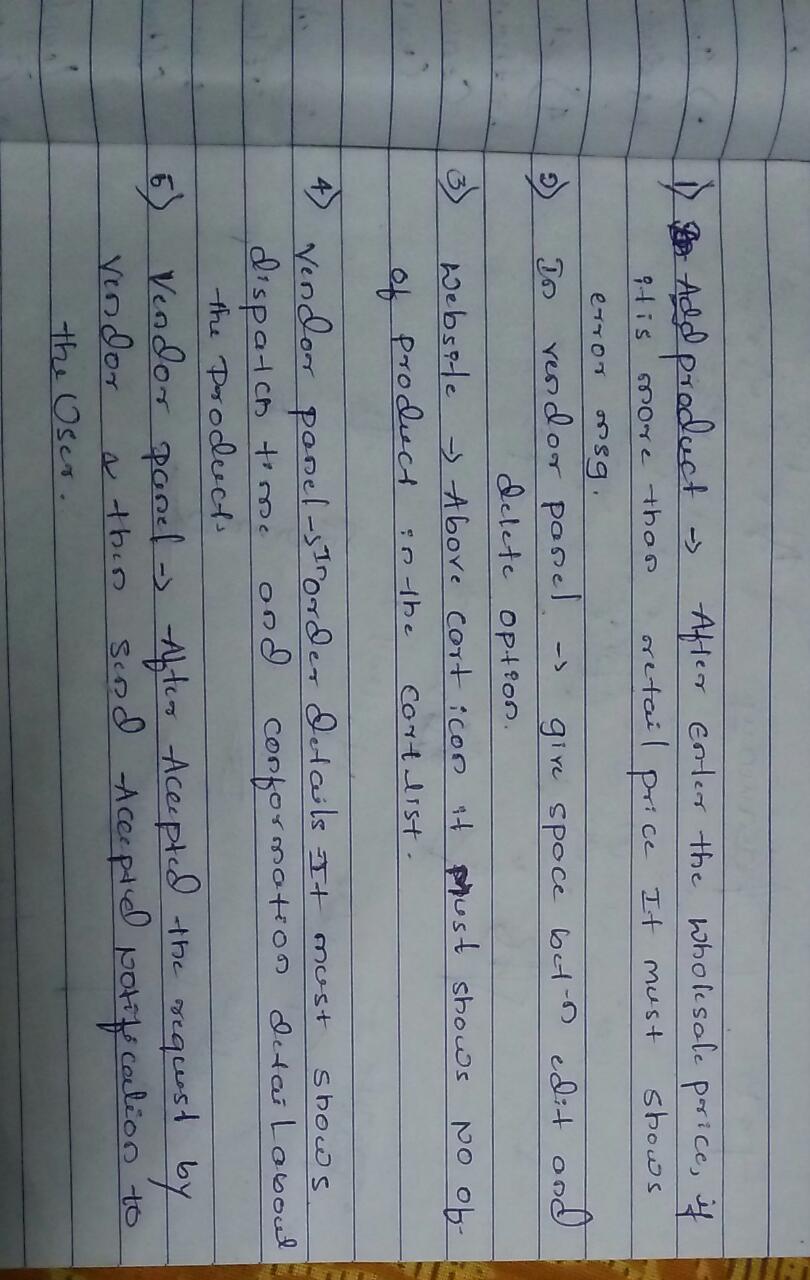 1) Add product → After Enter the wholesale price, if
it is more than retail price It must shows
error msg.
2) In vendor panel → give space bet-n edit and
delete option.
3) Website → Above cart icon it Must shows No of
of product in the cart list.
4) Vendor panel → In order Details It must shows
dispatch time and conformation detail about
the Product.
5) Vendor panel → After Accepted the request by
vendor then send Accepted Notification to
the User.